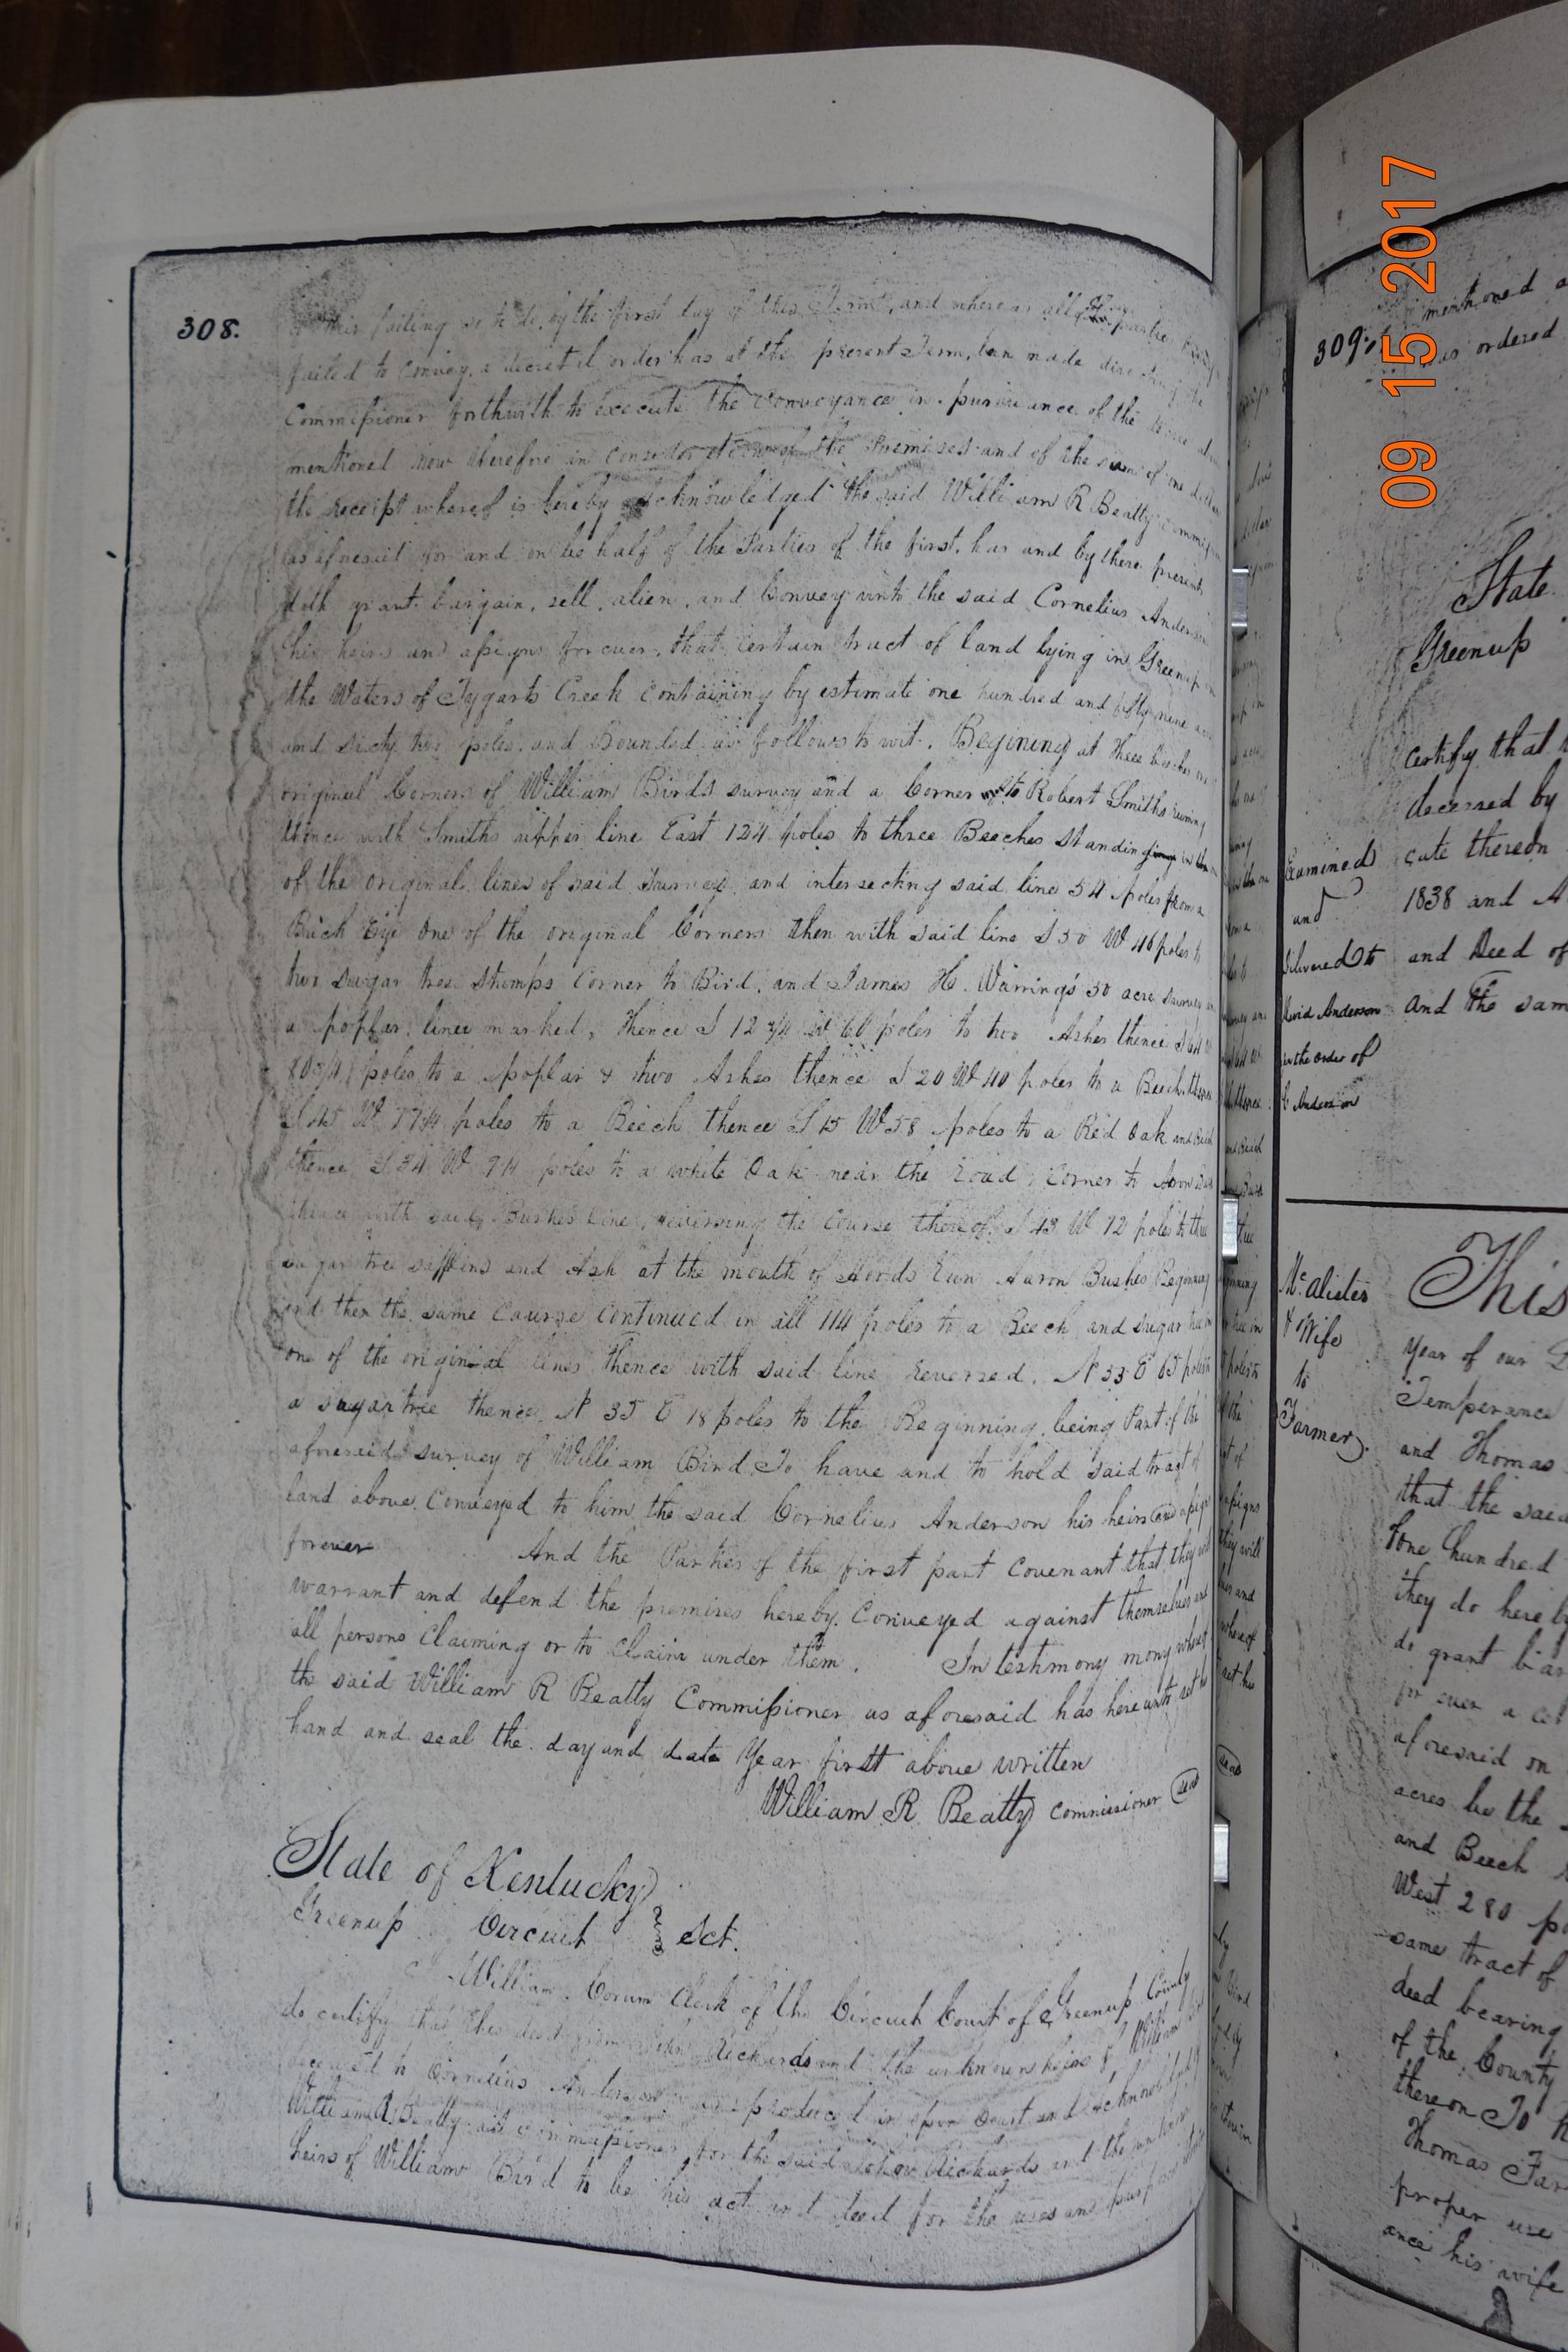 308.
this failing so to do, by the first day of this Term, and whereas all the parties
failed to Convey, a decretal order has at the present Term, been made directing the
Commissioner forthwith to execute the Conveyance in pursuance of the
mentioned Now therefore in consideration of the Premises and of the sum of one dollar
the receipt whereof is hereby acknowledged the said William R Beatty commissioner
as aforesaid for and on be half of the Parties of the first, has and by these presents
doth grant, bargain, sell, alien, and Convey unto the said Cornelius Anderson
his heirs and assigns forever, that certain tract of land lying in Greenup
the Waters of Tygarts Creek containing by estimate one hundred and fifty nine acres
and sixty two poles, and Bounded as follows to wit, Begining at three beeches
original Corners of William Birds survey and a Corner to Robert Smiths runing
thence with Smiths upper line East 124 poles to three Beeches standing in the
of the original lines of said Survey and intersecting said line 54 poles from a
Buck Eye One of the original Corners then with said line S 50 W 46 poles to
two sugar tree stumps Corner to Bird, and James H. Warring's 50 acre survey
a poplar lince marked, Thence S 12 3/4 W 60 poles to two Ashes thence
poles to a poplar & two Ashes thence S 20 W 40 poles to a Beech thence
W 77 3/4 poles to a Beech thence S 15 W 58 poles to a Red Oak
thence S 34 W 94 poles to a white Oak near the Road, Corner to Aaron Bush
thence with said Bushes line, reversing the course thereof S 43 W 72 poles to three
sugar tree saplins and Ash at the mouth of Hoods Run Aaron Bushes Begining
and then the same Course Continued in all 114 poles to a Beech and sugar tree in
one of the originial lines Thence with said line Reversed, N 33 E 65 poles to
a sugar tree thence, N 35 E 18 poles to the Beginning, being Part of the
aforesaid survey of William Bird To have and to hold said tract of
land above Conveyed to him the said Cornelius Anderson his heirs and assigns
forever And the Parties of the first part Covenant that they will
warrant and defend the premises hereby Conveyed against themselves and
all persons Claiming or to Claim under them. In testimony mony whereof
the said William R Beatty Commissioner as aforesaid has hereunto set his
hand and seal the day and date Year first above written
William R. Beatty commissioner seal
State of Kentucky
Greenup Circuit Sct.
I William Corum Clerk of the Circuit Court of Greenup County
do certify that this deed from John Rickards and the unknown heirs of William
deceased to Cornelius Anderson was produced in open Court and Acknowledged by
William R Beatty as commissioner for the said John Rickards and the unknown
heirs of William Bird to be his act and deed for the uses and purposes
309
mentioned
was ordered
State
Greenup
certify that
deceased by
Examined cute thereon
and 1838 and
Delivered to and Deed of
David Anderson And the sam
on the order of
C Anderson
McAlister This
& Wife Year of our
to Temperance
Farmer and Thomas
that the said
fone hundred
they do here
do grant bar
for ever a
aforesaid on
acres be the
and Beech
West 280
same tract of
deed bearing
of the County
thereon To
Thomas Far
proper use
ance his wife
09 15 2017